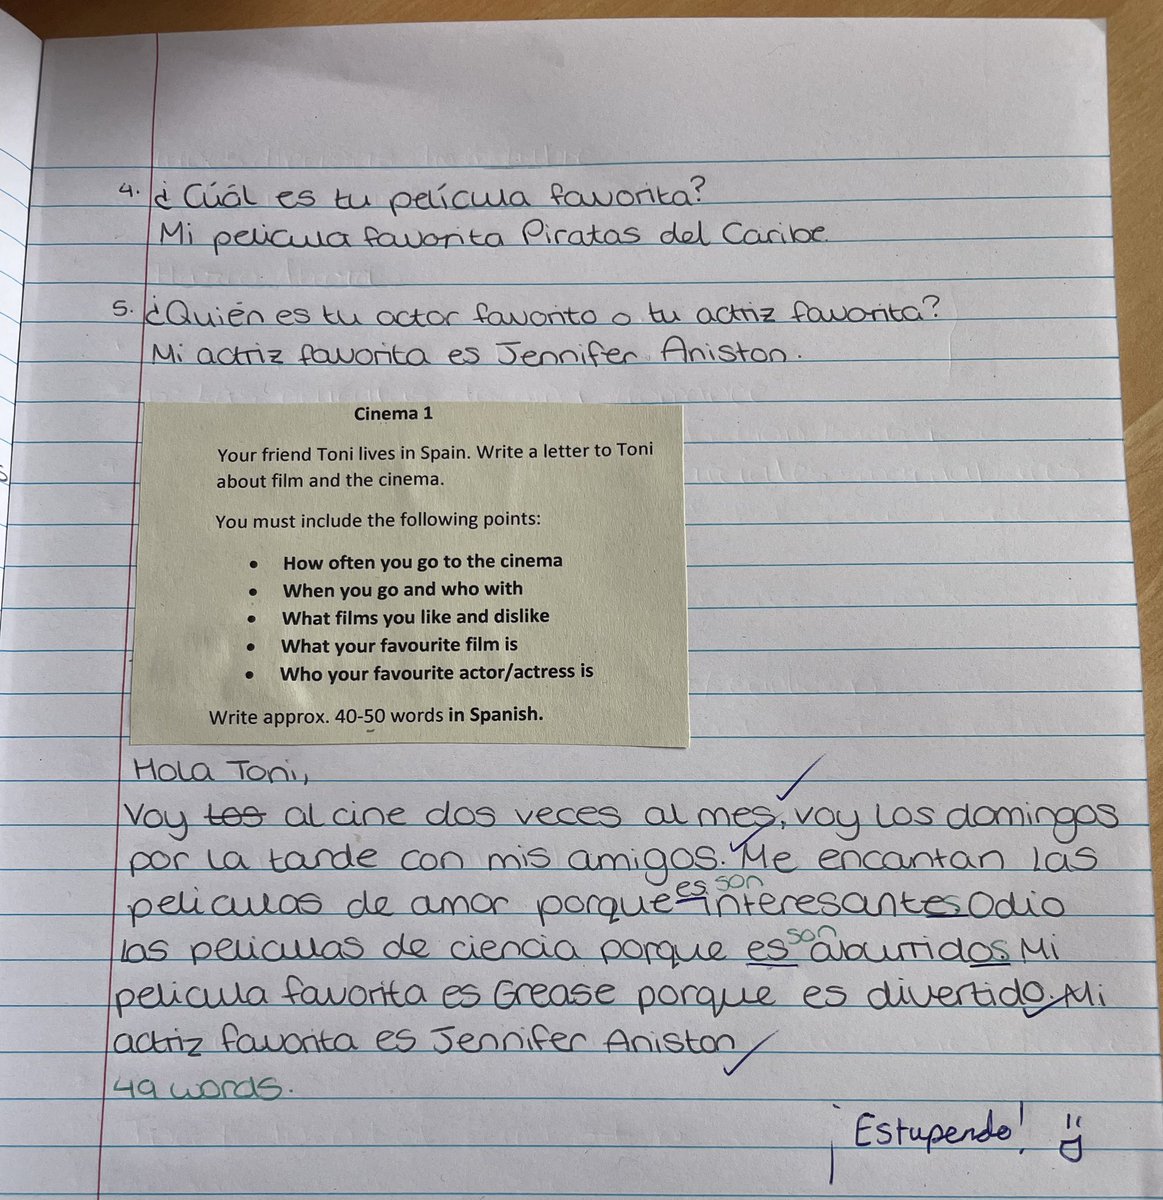 4. ¿Cúál es tu película favorita?
Mi pelicula favorita Piratas del Caribe.
5. ¿Quién es tu actor favorito o tu actriz favorita?
Mi actriz favorita es Jennifer Aniston.
Cinema 1
Your friend Toni lives in Spain. Write a letter to Toni
about film and the cinema.
You must include the following points:
• How often you go to the cinema
• When you go and who with
• What films you like and dislike
• What your favourite film is
• Who your favourite actor/actress is
Write approx. 40-50 words in Spanish.
Hola Toni,
Voy tos al cine dos veces al mes, voy los domingos
por la tarde con mis amigos. Me encantan las
es son
peliculas de amor porque interesantes Odio
son
las peliculas de ciencia porque es aburridos Mi
pelicula favorita es Grease porque es divertido. Mi
actriz favorita es Jennifer Aniston
49 words.
¡Estupendo!